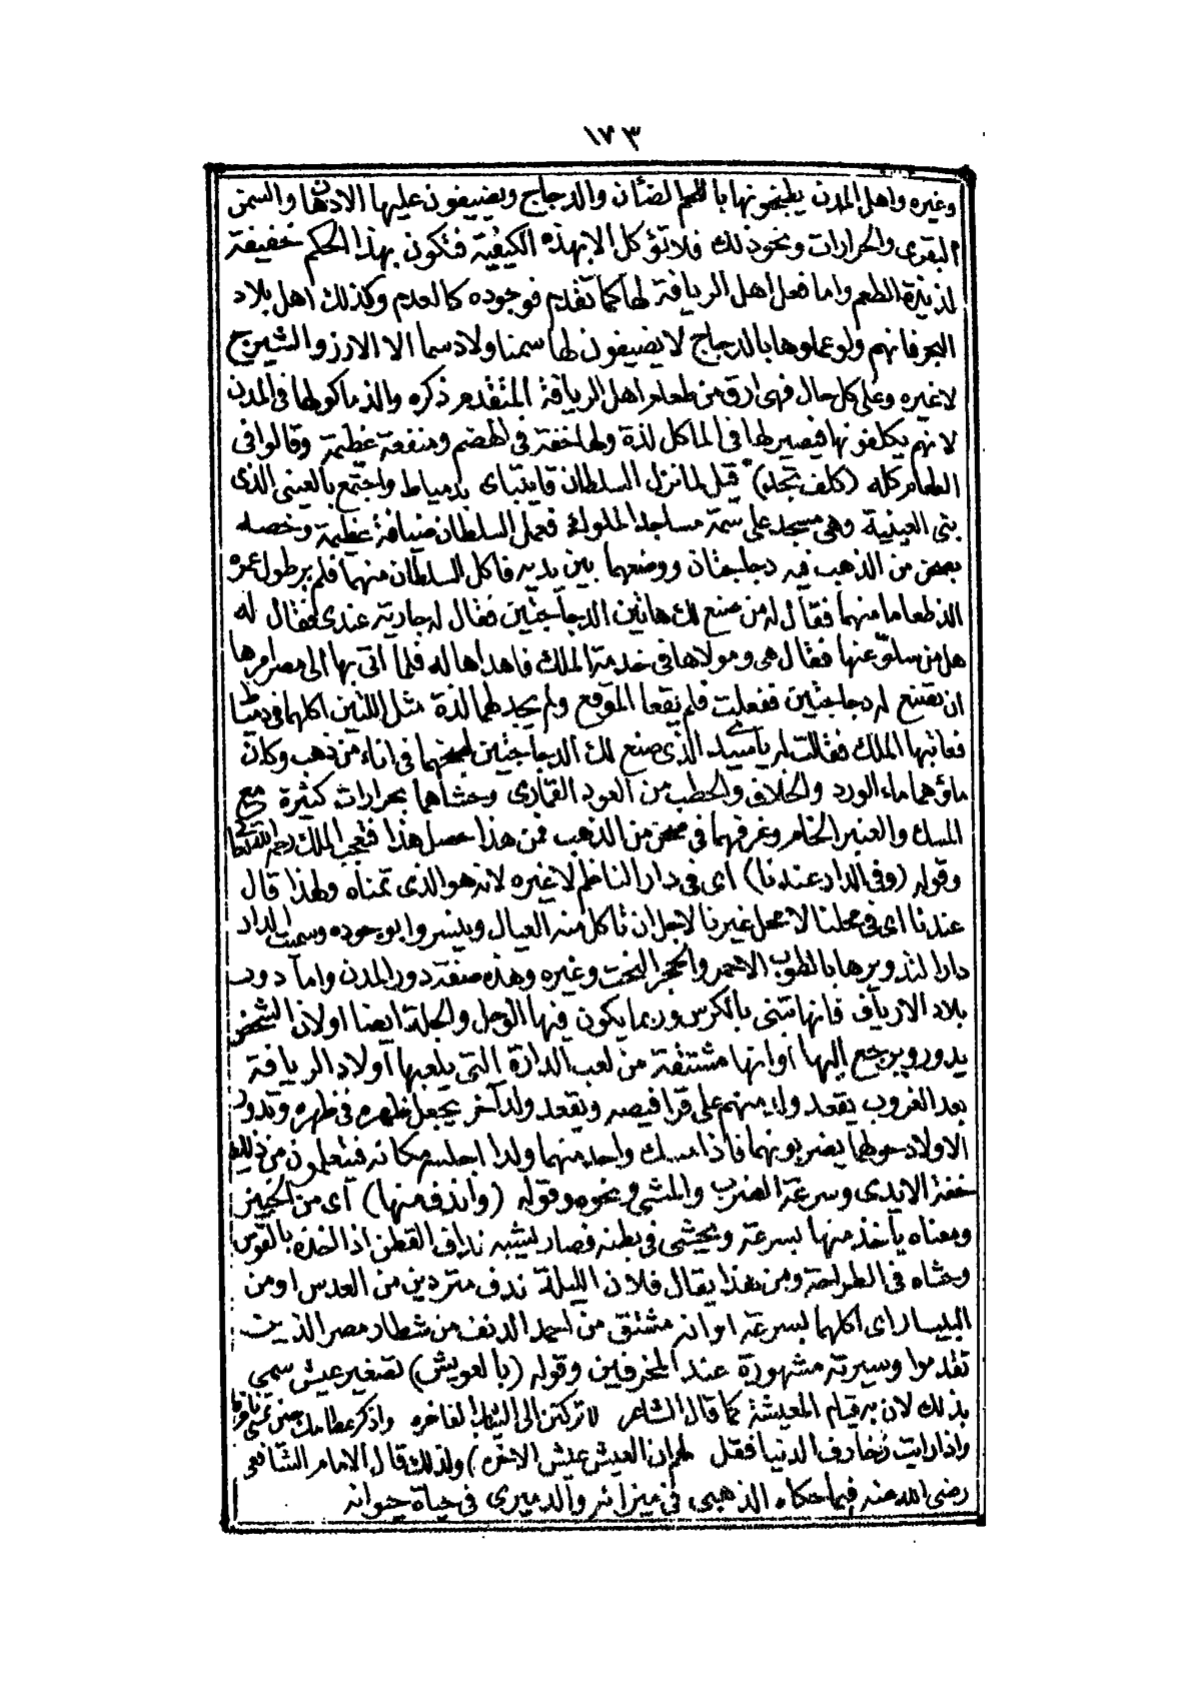 ١٧٣
وغيره واهل المدن يطبخونها باللحم الضأن والدجاج ويضيفون عليها الادهان والسمن
البقرى والحرارات ونحو ذلك فلا تؤكل الا بهذه الكيفية فتكون بهذا الحكم خفيفة
لذيذة الطعم واما فعل اهل الريافة لها كما تقدم فوجوده كالعدم وكذلك اهل بلاد
البحر فانهم ولو عملوها بالدجاج لا يضيفون لها سمنا ولا دسما الا الارز والشيرج
لا غيره وعلى كل حال فهى ارق من طعام اهل الريافة المتقدم ذكره والذ ماكولها فى المدن
لانهم يكلفونها فيصير لها فى الماكل لذة ولها خفة فى الهضم ومنفعة عظيمة وقالوا فى
الطعام كله (كلف تجله) قيل لما نزل السلطان قايتباى بدمياط واجتمع بالعينى الذى
بنى العينية وهى مسجد على سمة مساجد الملوك فعمل السلطان ضيافة عظيمة وخصه
بصحن من الذهب فيه دجاجتان ووضعهما بين يديه فاكل السلطان منهما فلم ير طول عمره
الذ طعاما منهما فقال له من صنع لك هاتين الدجاجتين فقال له جارية عندى فقال له
هل من سلو عنها فقال هى ومولاها فى خدمة الملك فاهداها له فلما اتى بها الى مصر امرها
ان تصنع له دجاجتين ففعلت فلم يقعا الموقع ولم يجد لهما لذة مثل اللتين اكلهما فى دمياط
فعاتبها الملك فقالت له يا سيدى الذى صنع لك الدجاجتين طبخهما فى اناء من ذهب وكان
ماؤهما ماء الورد والخلاف والحطب من العود القمارى وحشاهما بحرارات كثيرة مع
المسك والعنبر الخام وغرفهما فى صحن من الذهب فمن هذا حصل هذا فتعجب الملك رحمه الله تعالى
وقوله (وفى الدار عندنا) اى فى دار الناظم لا غيره لانه هو الذى تمناه ولهذا قال
عندنا اى فى محلنا لا محل غيرنا لاجل ان تاكل منه العيال وينسروا بوجوده وسميت الدار
دارا لتدويرها بالطوب الاحمر والحجر النحت وغيره وهذه صفة دور المدن واما دور
بلاد الارياف فانها تبنى بالكرس وربما يكون فيها الوحل والجلة ايضا او لان الشخص
يدور ويرجع إليها او انها مشتقة من لعب الدارة التى يلعبها اولاد الريافة
بعد الغروب يقعد ولد منهم على قرافيصه ويقعد ولد آخر يجعل ظهره فى ظهره وتدور
الاولاد حولهما يضربونهما فاذا مسك واحد منهما ولدا اجلسه مكانه فيتعلمون من ذلك
خفة الايدى وسرعة الضرب والمشى ونحوه وقوله (واندف منها) اى من الخبيز
ومعناه يأخذ منها بسرعة ويحشى فى بطنه فصار يشبه نداف القطن اذا اخذه بالقوس
وحشاه فى الطراحة ومن هذا يقال فلان الليلة ندف متردين من العدس او من
البيسار اى اكلهما بسرعة او انه مشتق من احمد الدنف من شطار مصر الذين
تقدموا وسيرته مشهورة عند المخرفين وقوله (بالعويش) تصغير عيش سمى
بذلك لان به قيام المعيشة كما قال الشاعر لا تركنن الى الثياب الفاخره واذكر عظامك حين تمسى ناخره
واذا رايت زخارف الدنيا فقل لهم ان العيش عيش الاخره) ولذلك قال الامام الشافعى
رضى الله عنه فيما حكاه الذهبى فى ميزانه والدميرى فى حياة حيوانه